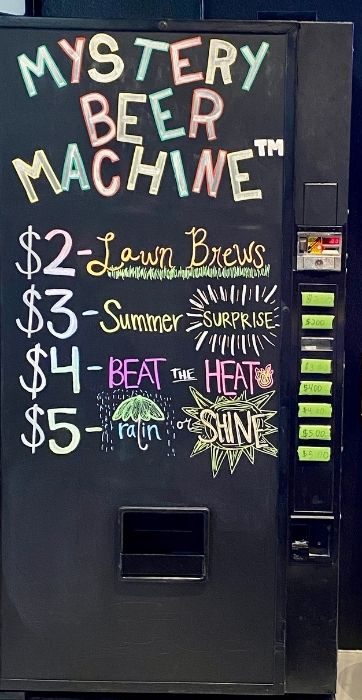 MYSTERY
BEER
MACHINE™
$2-Lawn Brews
$3-Summer SURPRISE
$4-BEAT THE HEAT
$5-rain or SHINE
$2.00
$4.00
$4.00
$5.00
$5.00